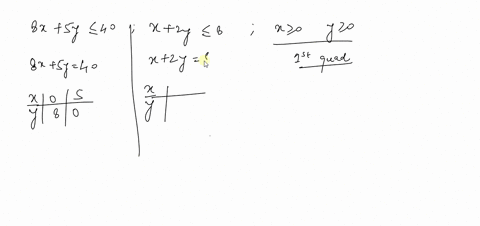 8x + 5y ≤ 40 ; x + 2y ≤ 8 ; x ≥ 0 y ≥ 0
8x + 5y = 40
x + 2y =
1st quad
x 0 5
y 8 0
x
y